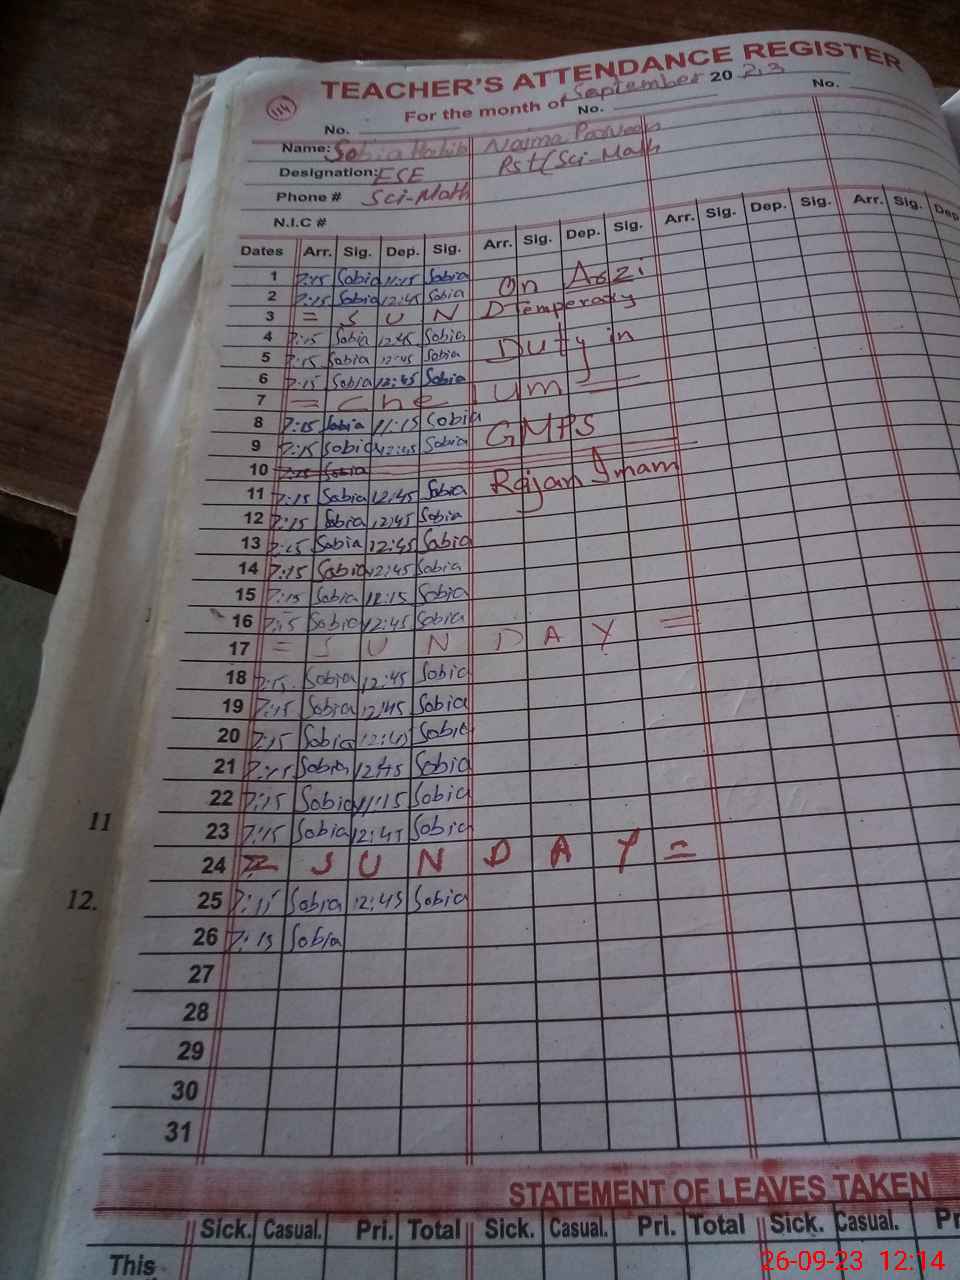 TEACHER'S ATTENDANCE REGISTER
114
For the month of September 2023
No. No. No.
Name: Sobia Habib Naima Parveen
Designation: ESE Pst(Sci-Math
Phone # Sci-Math
N.I.C #
Dates Arr. Sig. Dep. Sig. Arr. Sig. Dep. Sig. Arr. Sig. Dep. Sig. Arr. Sig. Dep
1 7:15 Sobia 11:15 Sobia On Arzi
2 7:15 Sobia 12:45 Sobia
3 = S U N D Temperary
4 7:15 Sobia 12:45 Sobia
5 7:15 Sobia 12:45 Sobia Duty in
6 7:15 Sobia 12:45 Sobia
7 = Che lum =
8 7:15 Sobia 11:15 Sobia
9 7:15 Sobia 12:45 Sobia GMPS
10 7:15 Sobia
11 7:15 Sobia 12:45 Sobia Rajan Imam
12 7:15 Sobia 12:45 Sobia
13 7:15 Sobia 12:45 Sobia
14 7:15 Sobia 12:45 Sobia
15 7:15 Sobia 11:15 Sobia
16 7:15 Sobia 12:45 Sobia
17 = S U N D A Y =
18 7:15 Sobia 12:45 Sobia
19 7:15 Sobia 12:45 Sobia
20 7:15 Sobia 12:45 Sobia
21 7:15 Sobia 12:45 Sobia
22 7:15 Sobia 11:15 Sobia
11
23 7:15 Sobia 12:45 Sobia
24 = S U N D A Y =
12.
25 7:15 Sobia 12:45 Sobia
26 7:15 Sobia
27
28
29
30
31
STATEMENT OF LEAVES TAKEN
Sick. Casual. Pri. Total Sick. Casual. Pri. Total Sick. Casual. Pr
This
26-09-23 12:14